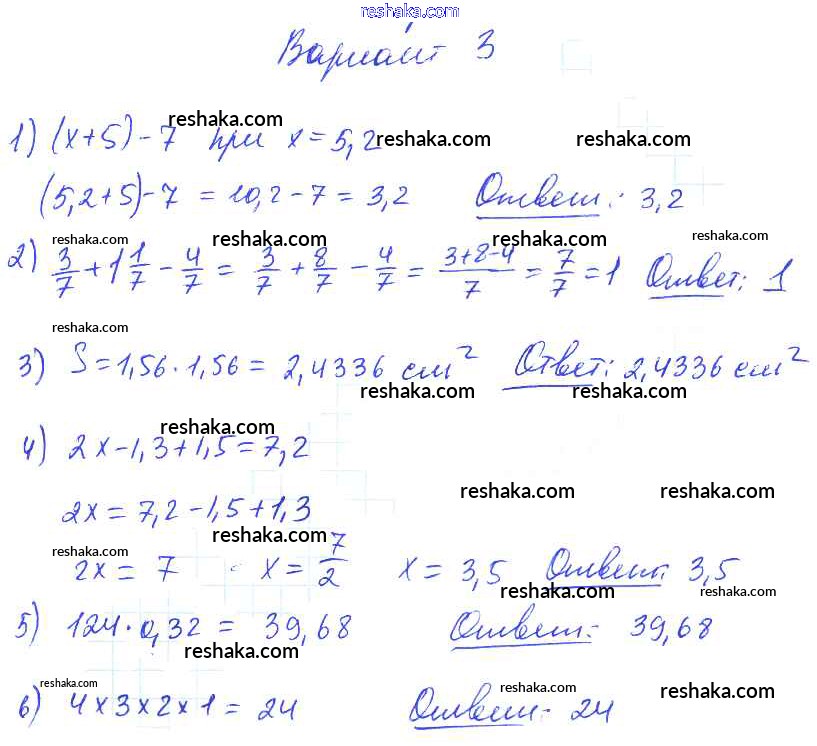 reshaka.com
Вариант 3
reshaka.com
1) (x+5)-7 при x=5,2 reshaka.com reshaka.com
(5,2+5)-7 = 10,2-7 = 3,2 Ответ: 3,2
reshaka.com reshaka.com reshaka.com reshaka.com
2) 3/7 + 1 1/7 - 4/7 = 3/7 + 8/7 - 4/7 = (3+8-4)/7 = 7/7 = 1 Ответ: 1
reshaka.com
3) S = 1,56 · 1,56 = 2,4336 см² Ответ: 2,4336 см²
reshaka.com reshaka.com
reshaka.com
4) 2x-1,3+1,5=7,2
reshaka.com reshaka.com
2x = 7,2-1,5+1,3
reshaka.com reshaka.com
2x = 7 x = 7/2 x = 3,5 Ответ: 3,5
reshaka.com reshaka.com
5) 124 · 0,32 = 39,68 Ответ: 39,68
reshaka.com
reshaka.com reshaka.com reshaka.com
6) 4 x 3 x 2 x 1 = 24 Ответ: 24